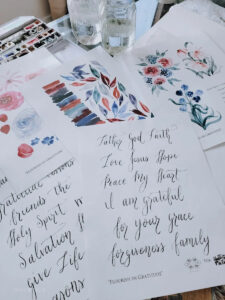 Father God Faith
Love Jesus Hope
Peace My Heart
I am grateful
for your grace
forgiveness family
"Flourish in Gratitude"
Gratitude
friends the
Holy Spirit
Salvation
give Life